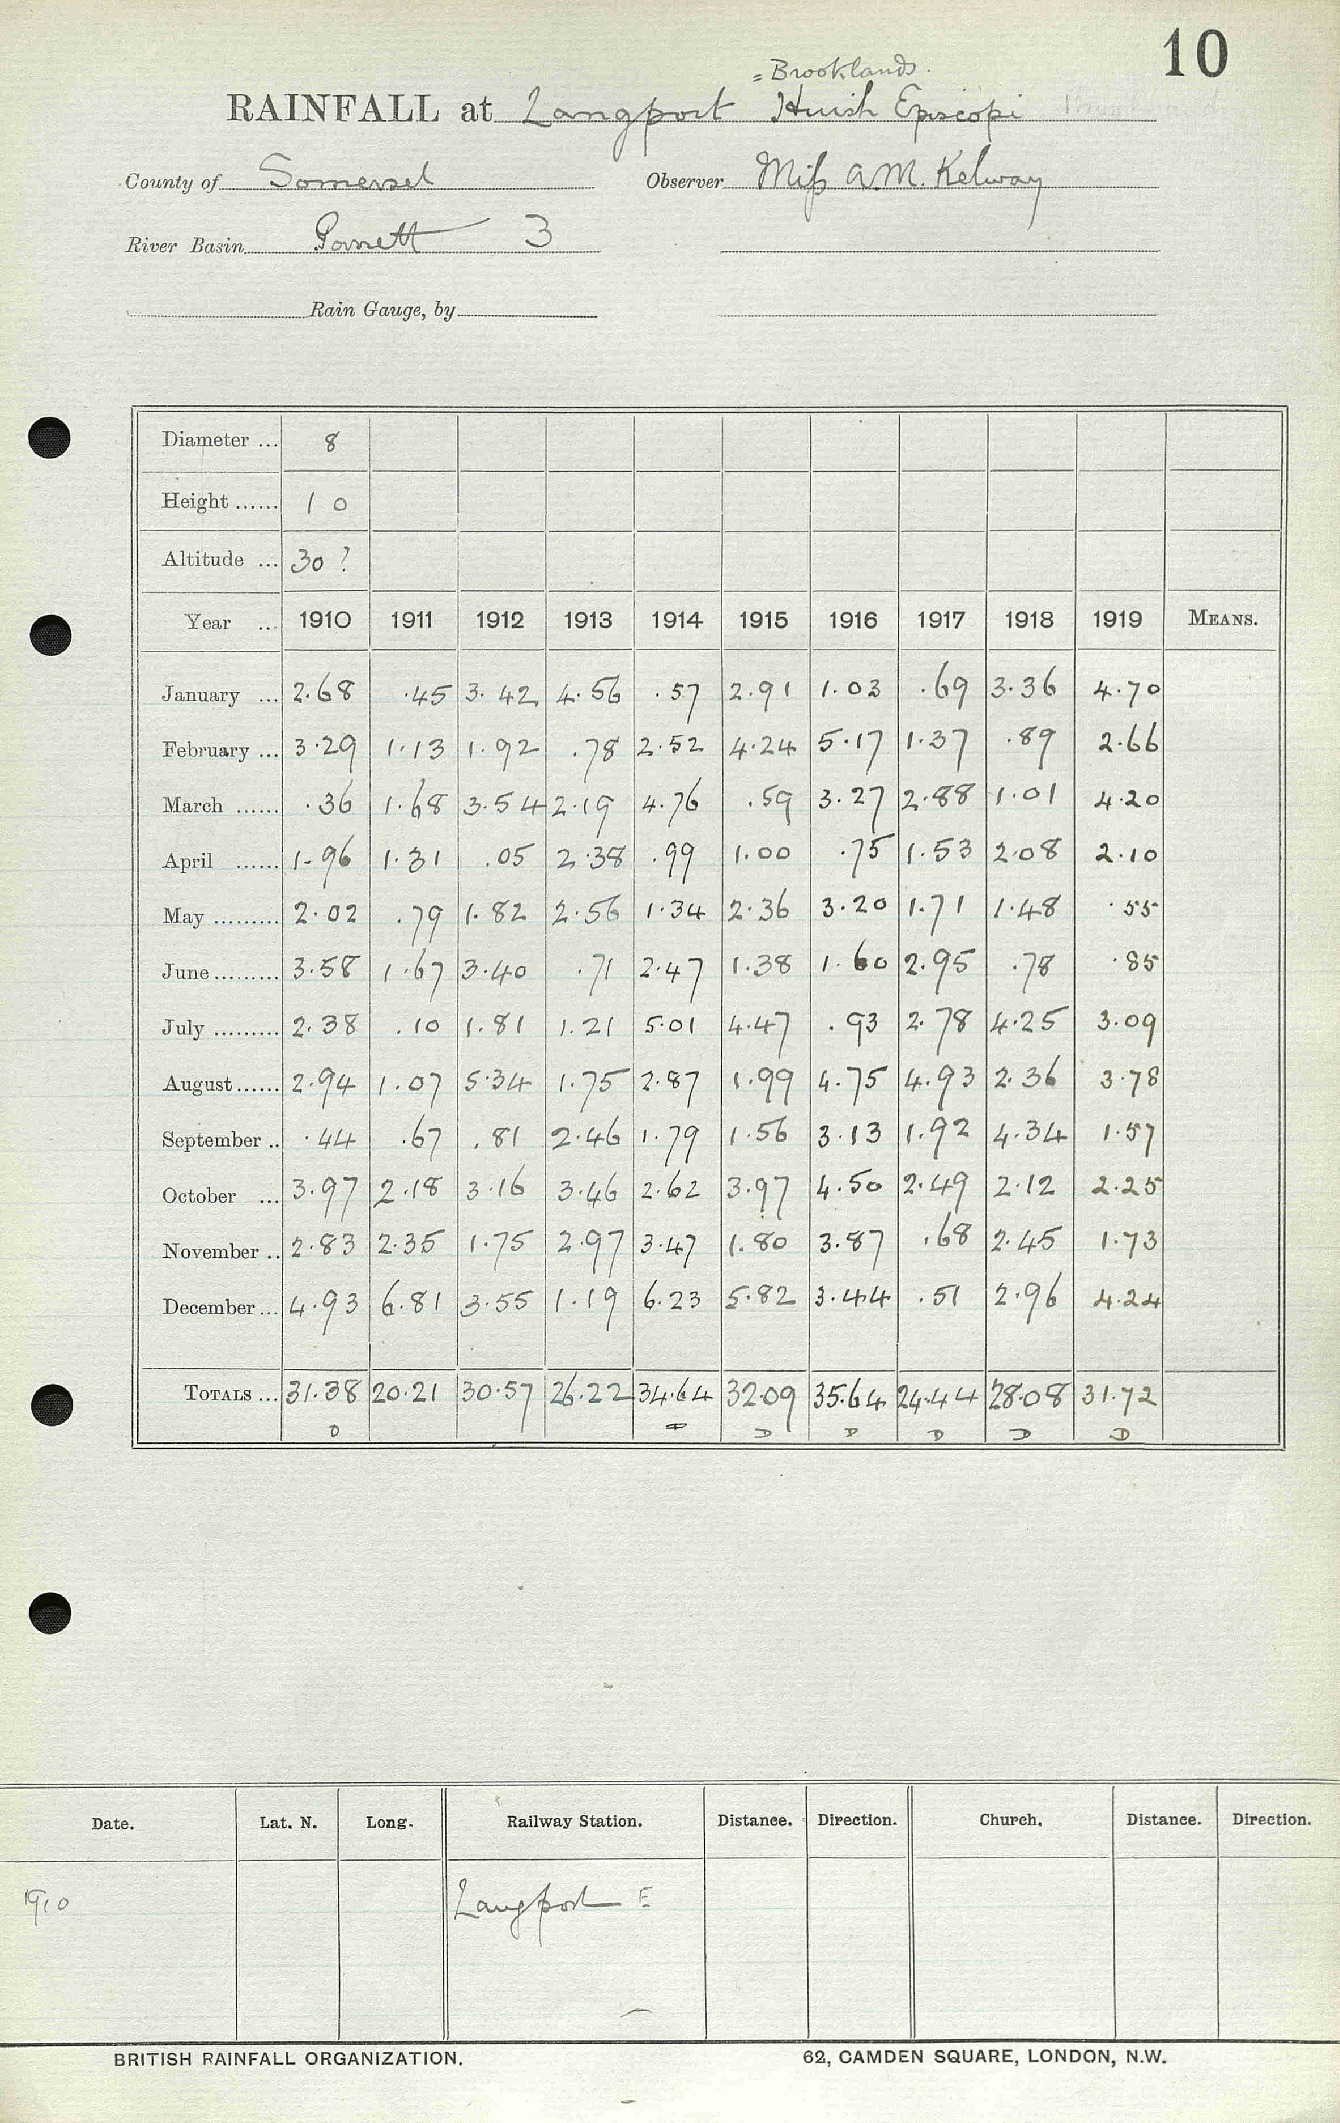 10
= Brooklands.
RAINFALL at Langport Huish Episcopi
County of Somerset Observer Miss A.M. Kelway
River Basin Parrett 3
Rain Gauge, by
Diameter ... 8
Height ...... 1 0
Altitude ... 30 ?
Year ... 1910 1911 1912 1913 1914 1915 1916 1917 1918 1919 MEANS.
January ... 2.68 .45 3.42 4.56 .57 2.91 1.03 .69 3.36 4.70
February ... 3.29 1.13 1.92 .78 2.52 4.24 5.17 1.37 .89 2.66
March ...... .36 1.68 3.54 2.19 4.76 .59 3.27 2.88 1.01 4.20
April ...... 1.96 1.31 .05 2.38 .99 1.00 .75 1.53 2.08 2.10
May ......... 2.02 .79 1.82 2.56 1.34 2.36 3.20 1.71 1.48 .55
June ......... 3.58 1.67 3.40 .71 2.47 1.38 1.60 2.95 .78 .85
July ......... 2.38 .10 1.81 1.21 5.01 4.47 .93 2.78 4.25 3.09
August ...... 2.94 1.07 5.34 1.75 2.87 1.99 4.75 4.93 2.36 3.78
September .. .44 .67 .81 2.46 1.79 1.56 3.13 1.92 4.34 1.57
October ... 3.97 2.18 3.16 3.46 2.62 3.97 4.50 2.49 2.12 2.25
November .. 2.83 2.35 1.75 2.97 3.47 1.80 3.87 .68 2.45 1.73
December ... 4.93 6.81 3.55 1.19 6.23 5.82 3.44 .51 2.96 4.24
TOTALS ... 31.38 20.21 30.57 26.22 34.64 32.09 35.64 24.44 28.08 31.72
D D D D D D
Date. Lat. N. Long. Railway Station. Distance. Direction. Church. Distance. Direction.
1910 Langport E
BRITISH RAINFALL ORGANIZATION. 62, CAMDEN SQUARE, LONDON, N.W.